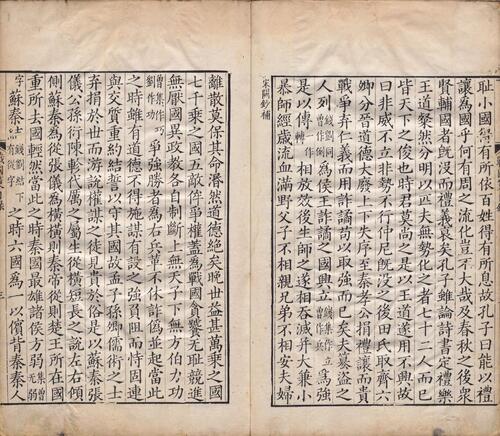 耻小國得有所依百姓得有所息故孔子曰能以禮
讓為國乎何有周之流化豈不大哉及春秋之後衆
賢輔國者旣沒而禮義衰矣孔子雖論詩書定禮樂
王道粲然分明以匹夫無勢化之者七十二人而已
皆天下之俊也時君莫尚之是以王道遂用不興故
曰非威不立非勢不行仲尼旣沒之後田氏取齊六
卿分晉道德大廢上下失序至秦孝公捐禮讓而貴
戰爭弃仁義而用詐譎苟以取強而已矣夫篡盜之
人列為侯王詐譎之國興立為強
是以傳轉作相放效後生師之遂相吞滅并大兼小
暴師經歲流血滿野父子不相親兄弟不相安夫婦
宋闕鈔補
離散莫保其命湣然道德絕矣晚世益甚萬乘之國
七千乘之國五敵侔爭權蓋為戰國貪饕无耻競進
無厭國異政教各自制斷上無天子下無方伯力功
曾集作巧劉作功爭強勝者為右兵革不休詐偽並起當此
之時雖有道德不得施謀有設之強負阻而恃固連
與交質重約結誓以守其國故孟子孫卿儒術之士
弃捐於世而游說權謀之徒見貴於俗是以蘇秦張
儀公孫衍陳軫代厲之屬生從橫短長之說左右傾
側蘇秦為從張儀為橫橫則秦帝從則楚王所在國
重所去國輕然當此之時秦國最雄諸侯方弱集曾无弱
字蘇秦結錢劉結下從字之時六國為一以儐背秦秦人